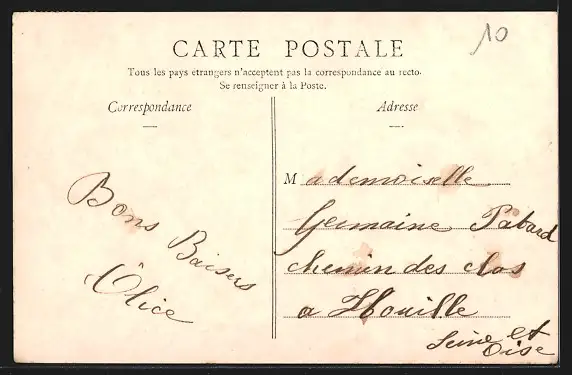 10
CARTE POSTALE
Tous les pays étrangers n'acceptent pas la correspondance au recto.
Se renseigner à la Poste.
Correspondance
Adresse
Bons Baisers
Alice
Mademoiselle
Germaine Pabard
chemin des clos
a Houille
Seine et
Oise